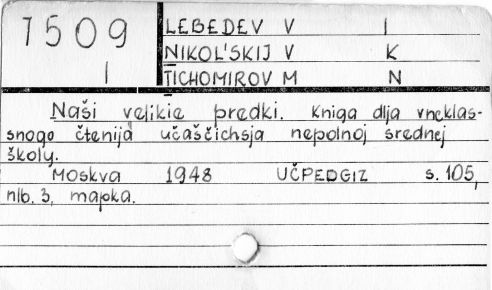 1509 LEBEDEV V I
NIKOL'SKIJ V K
1 TICHOMIROV M N
Naši velikie predki. Kniga dlja vneklas-
snogo čtenija učaščichsja nepolnoj srednej
školy.
Moskva 1948 UČPEDGIZ s. 105,
nlb. 3, mapka.